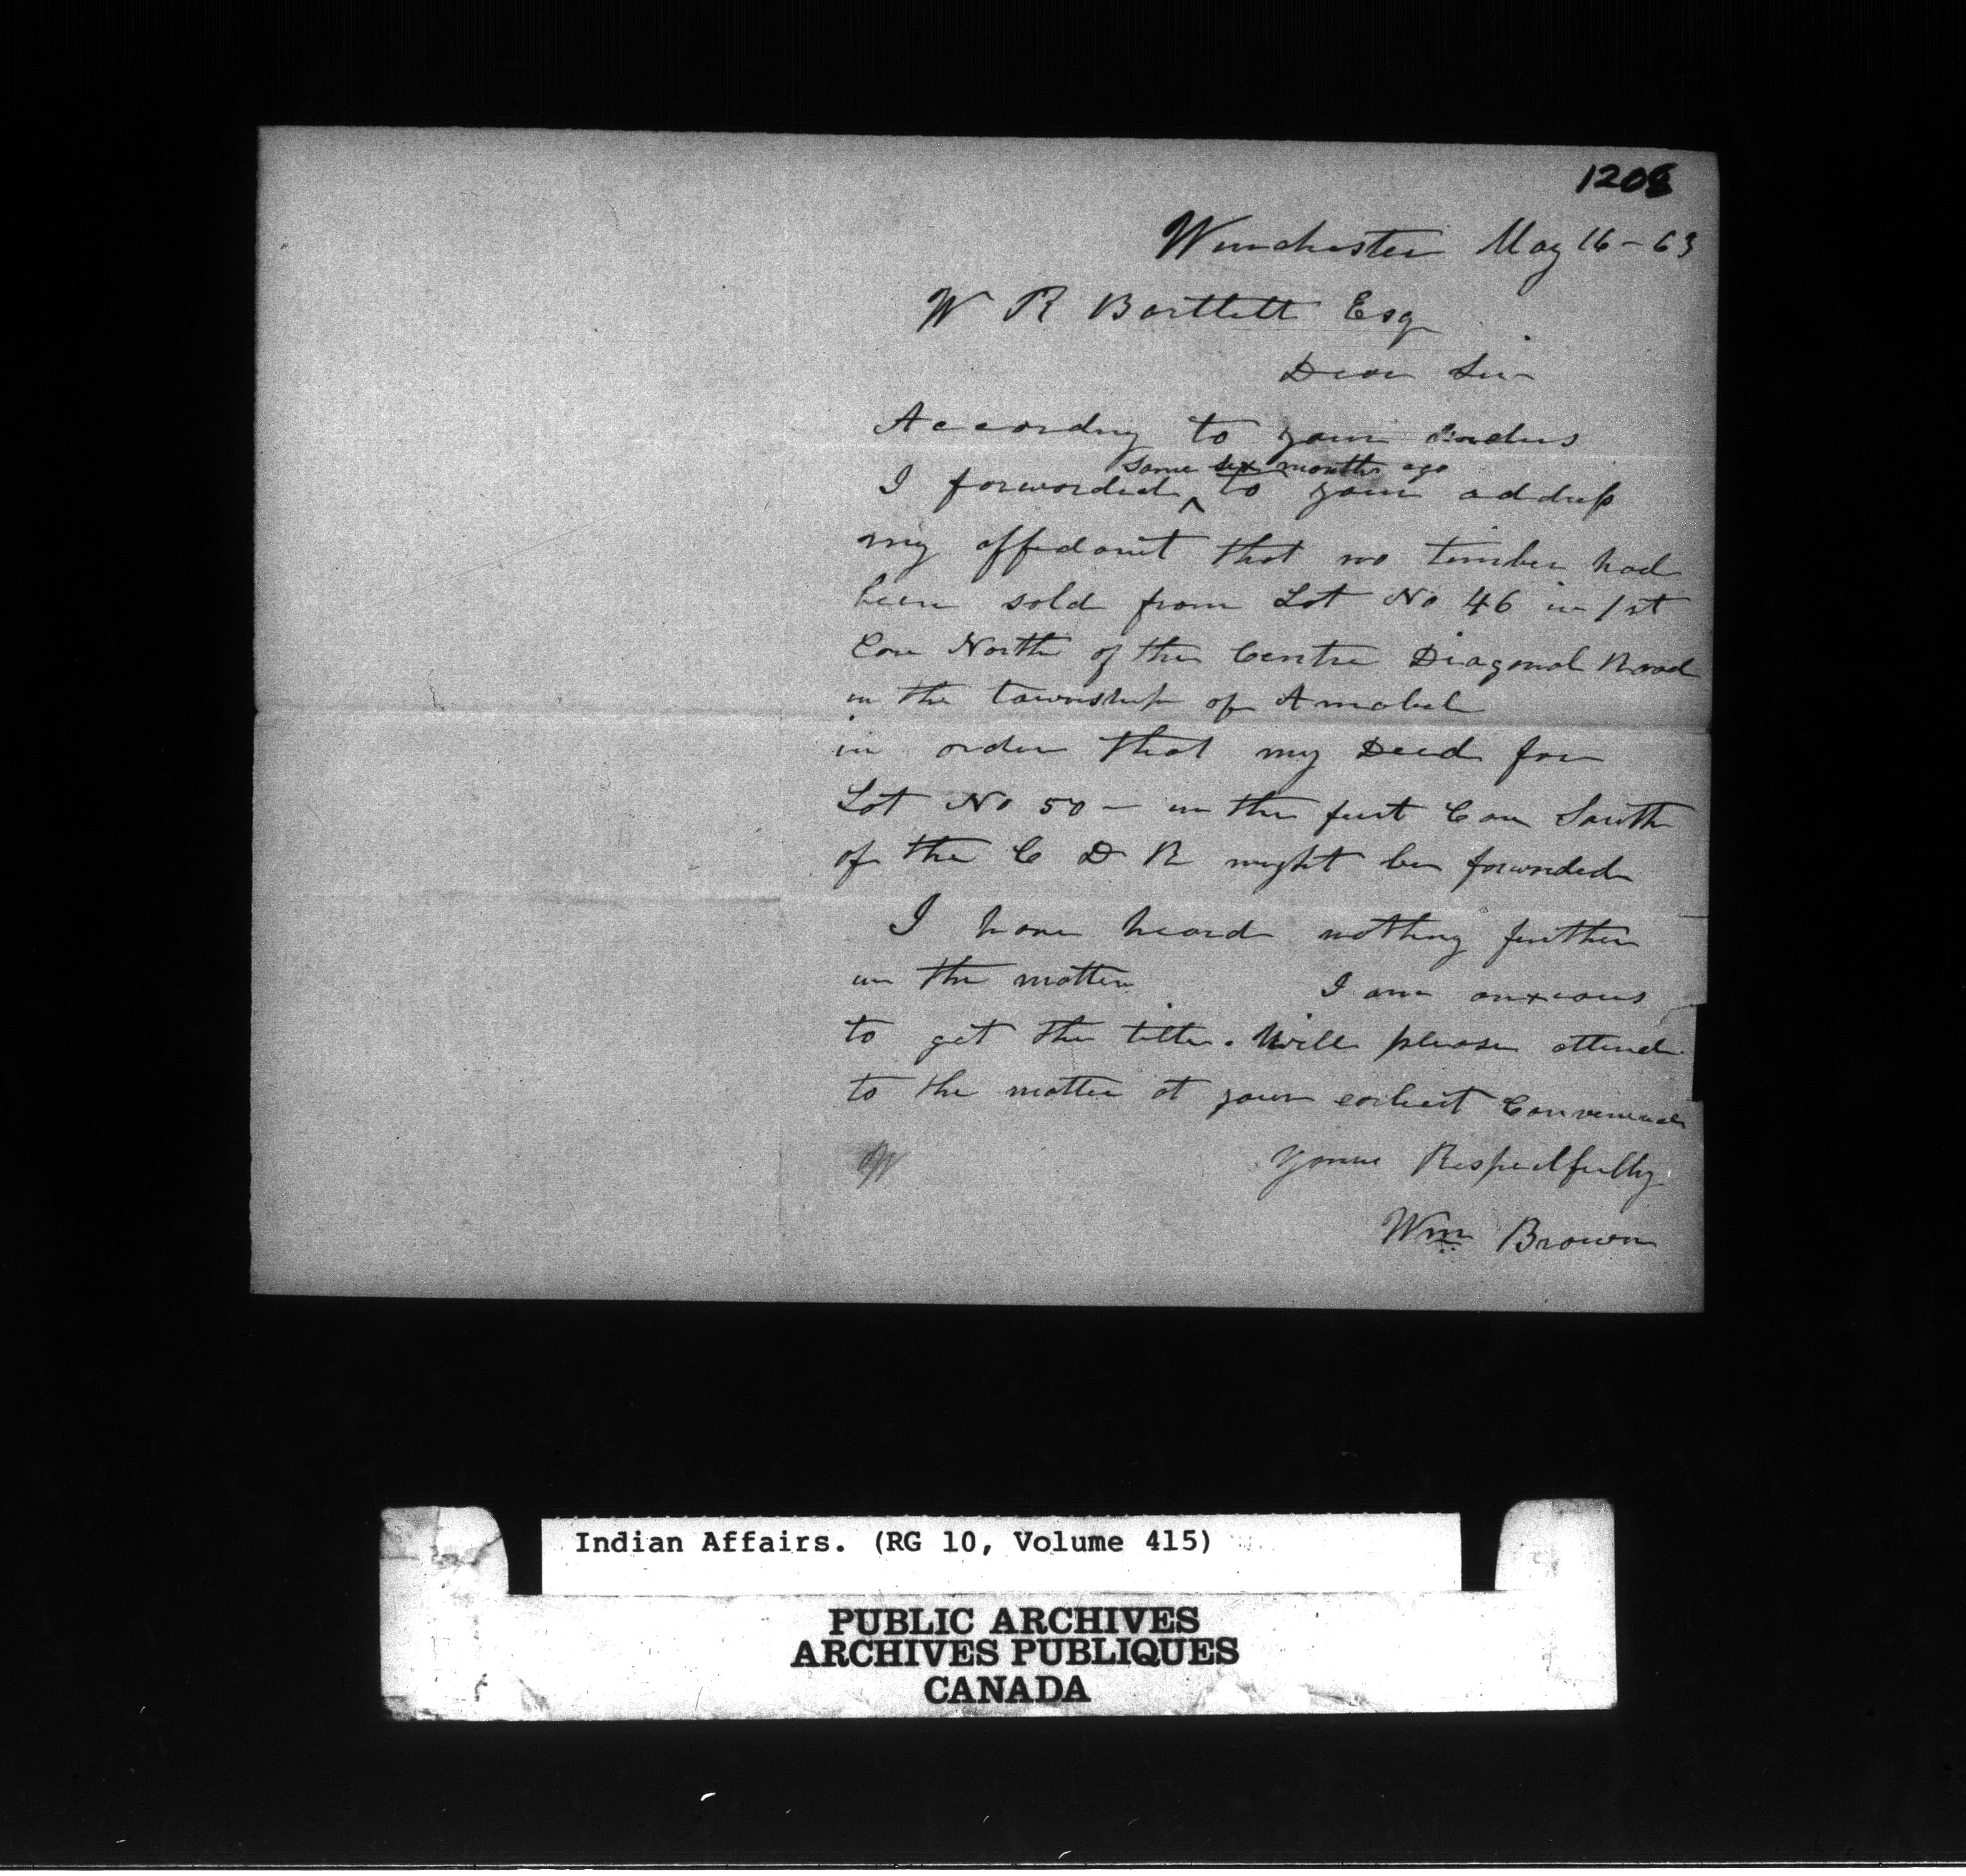 1208
Winchester May 16-63
W R Bartlett Esq
Dear Sir
According to your orders
some six months ago
I forwarded ^ to your address
my affidavit that no timber had
been sold from Lot No 46 in 1st
Con North of the Centre Diagonal Road
in the township of Amabel
in order that my Deed for
Lot No 50 - in the first Con South
of the C D R might be forwarded
I have heard nothing further
in the matter I am anxious
to get the title. Will please attend
to the matter at your earliest Convenience
Yours Respectfully
Wm Brown
Indian Affairs. (RG 10, Volume 415)
PUBLIC ARCHIVES
ARCHIVES PUBLIQUES
CANADA